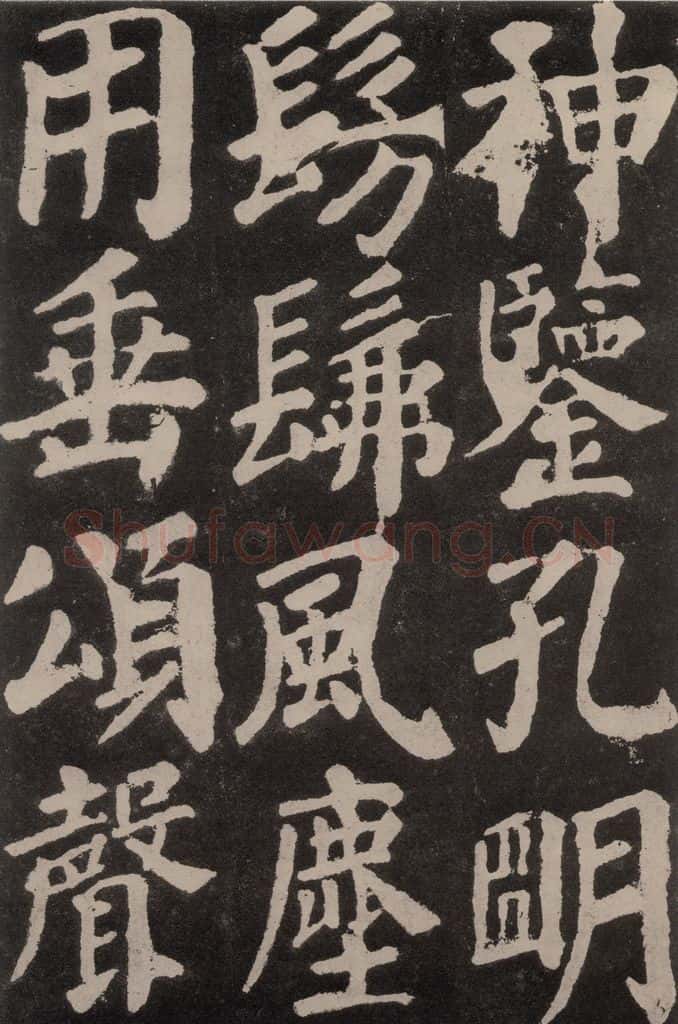 神鑒孔朙
髣髴風塵
用垂頌聲
Shufawang.CN